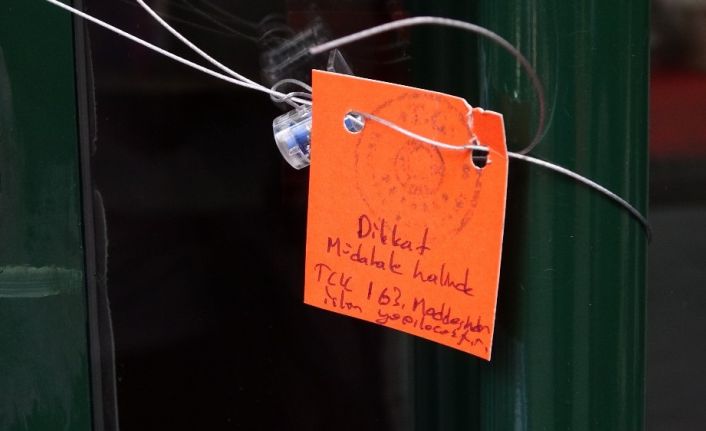 T.C.
Dikkat
Müdahale halinde
TCK 163. Maddesinden
işlem yapılacaktır.